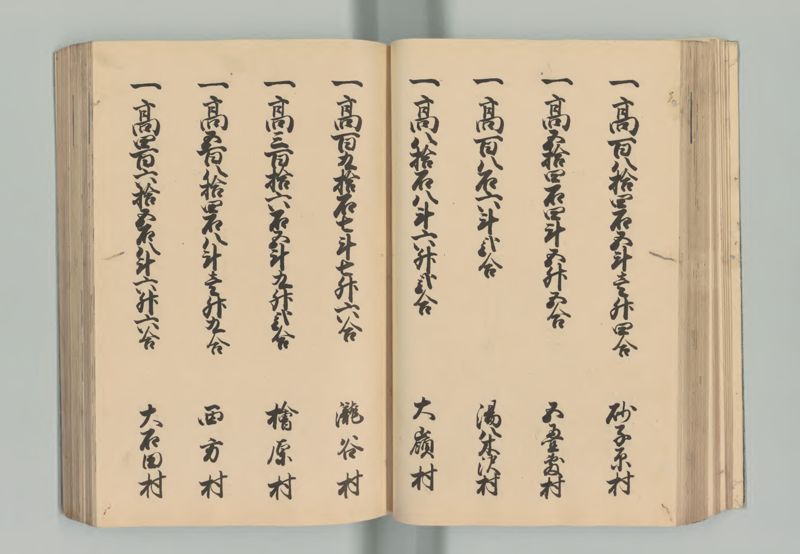 一高百八拾四石五斗壱升四合 砂子原村
一高五拾四石四斗五升五合 五畳敷村
一高百八石六斗弐合 湯八木沢村
一高八拾石八斗六升弐合 大嶺村
一高百九拾石七斗七升六合 瀧谷村
一高三百拾六石五斗九升弐合 檜原村
一高五百八拾四石八斗壱升九合 西方村
一高四百六拾五石八斗六升六合 大石田村